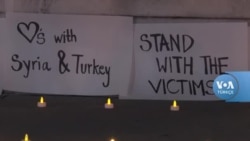 ♡s with
Syria & Turkey
STAND
WITH THE
VICTIMS
VOA
TÜRKÇE